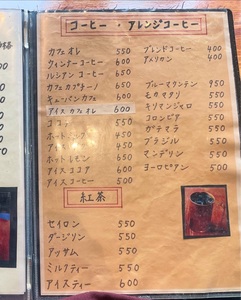 コーヒー・アレンジコーヒー
カフェオレ 550
ウィンナーコーヒー 600
ルシアンコーヒー 650
カフェカプチーノ 650
キューバンカフェ 600
アイスカフェオレ 600
ココア 550
ホット 450
アイス 450
ホットレモン 650
アイスココア 600
アイスコーヒー 500
ブレンドコーヒー 400
アメリカン 400
ブルーマウンテン 950
モカマタリ 550
キリマンジャロ 550
コロンビア 550
ガテマラ 550
ブラジル 550
マンデリン 550
ヨーロピアン 500
紅茶
セイロン 550
ダージリン 550
アッサム 550
ミルクティー 550
アイスティー 600